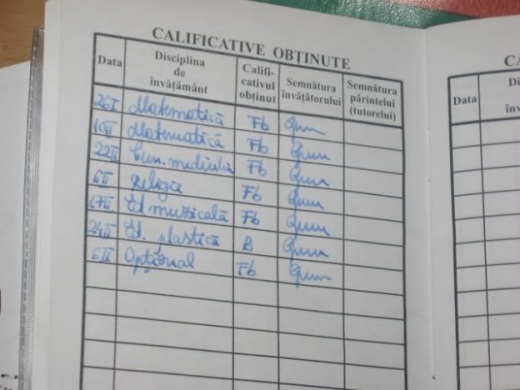 CALIFICATIVE OBȚINUTE
Data Disciplina de învățământ Califi-cativul obținut Semnătura învățătorului Semnătura părintelui (tutorelui)
Matematică Fb
Matematică Fb
22 II Cun. mediului Fb
6 II Religie Fb
17 II Ed muzicală Fb
Ed. plastică B
6 II Opțional Fb
Data